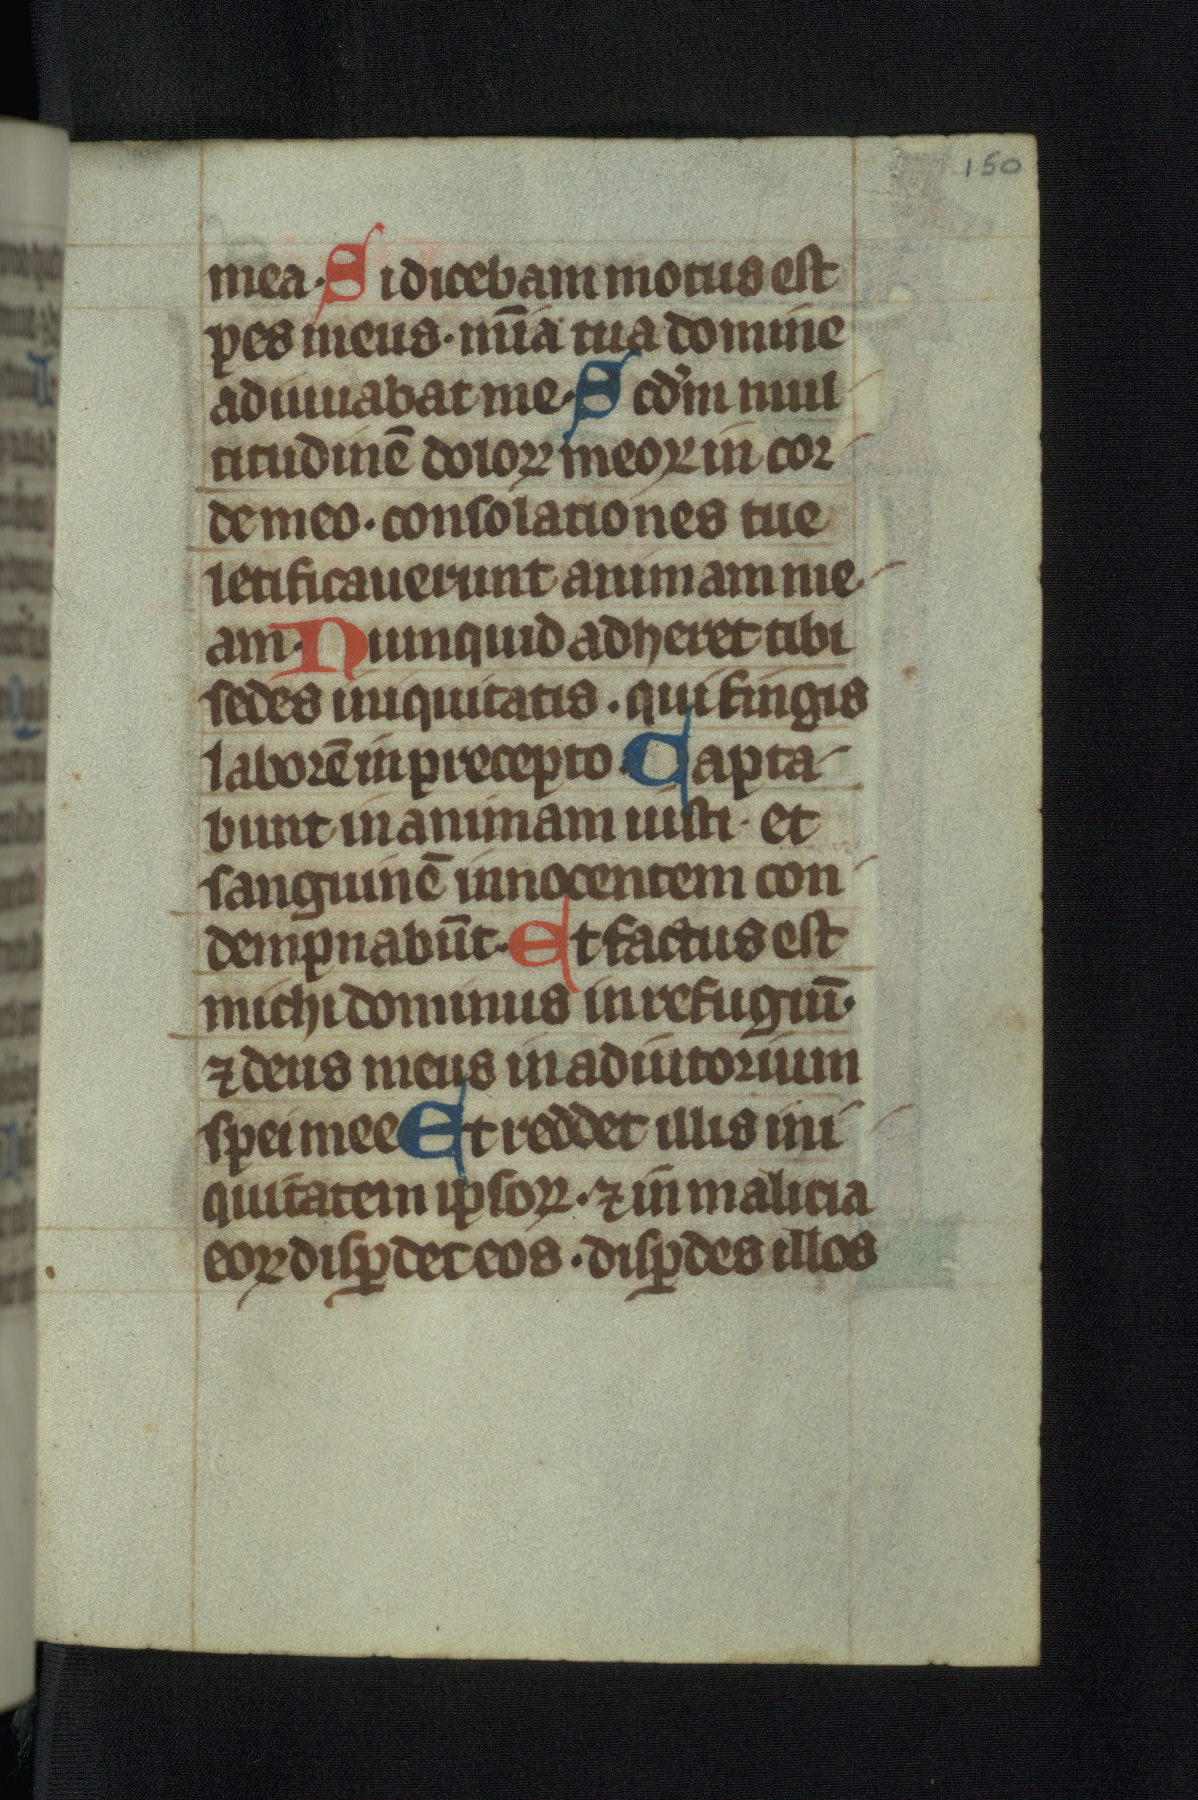 150
mea · Si dicebam motus est
pes meus · mīa tua domine
adiuuabat me · Scd'm mul-
titudinē doloꝝ meoꝝ in cor-
de meo · consolationes tue
letificauerunt animam me-
am · Nunquid adheret tibi
sedes iniquitatis · qui fingis
laborē in precepto · Capta-
bunt in animam iusti · et
sanguinē innocentem con-
dempnabūt · Et factus est
michi dominus in refugiū ·
⁊ deus meus in adiutorium
spei mee Et reddet illis ini-
quitatem ipsoꝝ · ⁊ in malicia
eoꝝ disꝑdet eos · disꝑdes illos